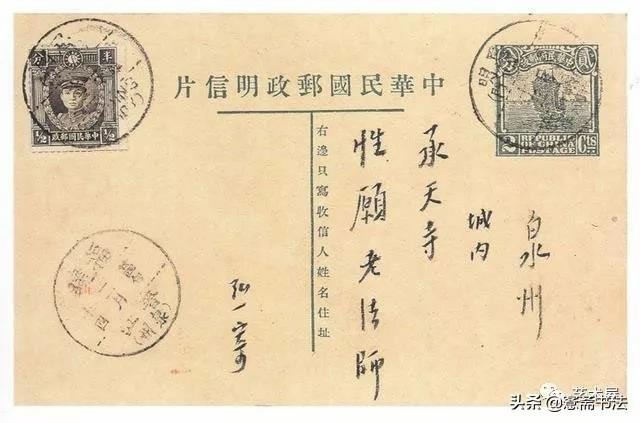 中華民國郵政明信片
半分
½ 中華民國郵政 ½
貳分
2 Cts
REPUBLIC
OF CHINA
POSTAGE
泉州
城内
承天寺
性願老法師
右邊只寫收信人姓名住址
弘一寄
头条
斋书法